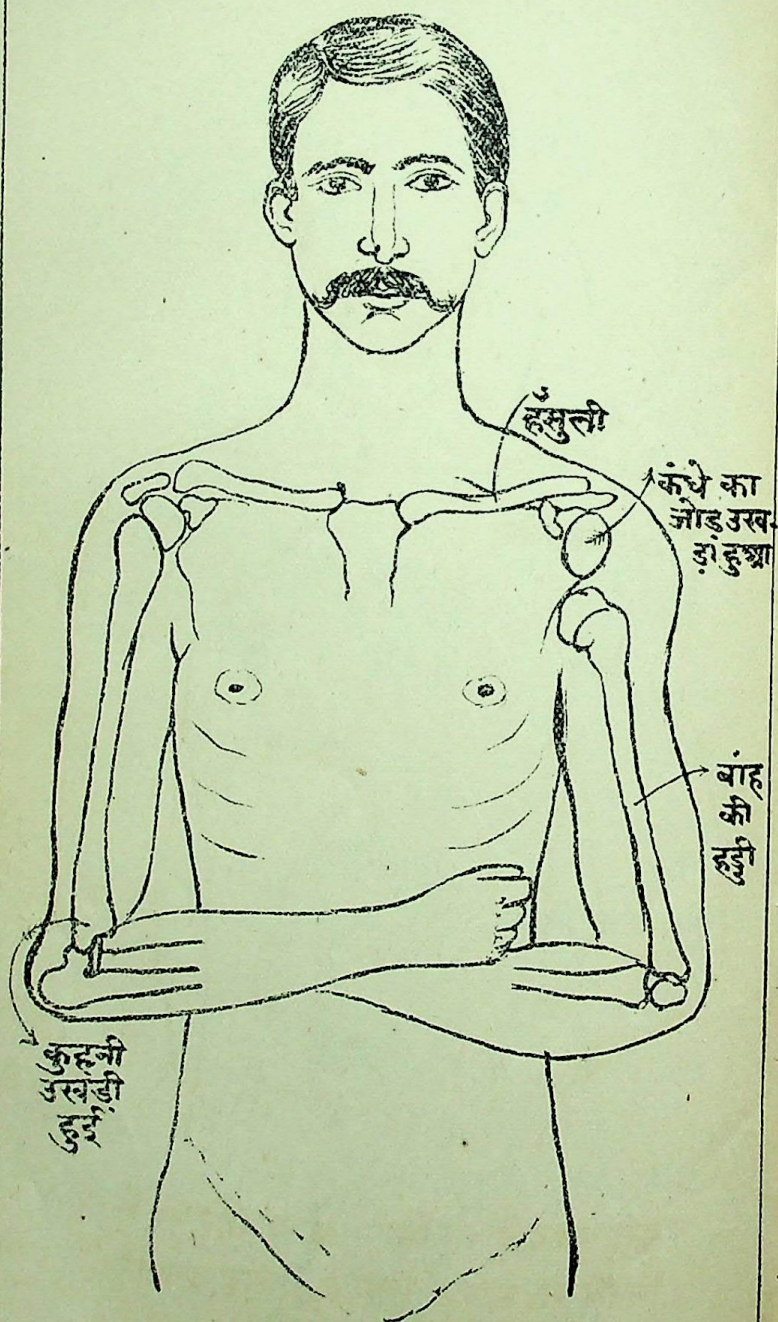 हँसुली
कंधे का
जोड़ उख-
ड़ा हुआ
बांह
की
हड्डी
कुहनी
उखड़ी
हुई